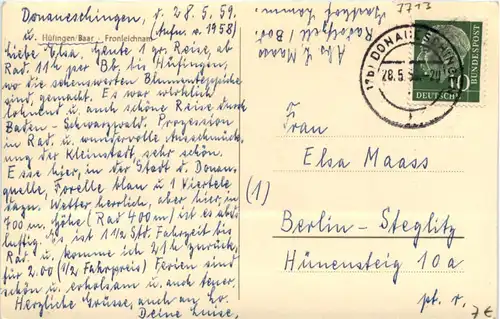 Donaueschingen, d. 28.5.59.
(Aufn. v. 1958)
Hüfingen/Baar - Fronleichnam
Liebe Elsa. Heute 1 gr. Reise, ab
Rad. 11h per Bb. bis Hüfingen,
wo die sehenswerten Blumenteppiche
sind, gemacht. Es war wirklich
lohnend u. auch schöne Reise durch
Baden - Schwarzwald. Prozession
in Rad. u. wundervolle Ausschmück-
ung der Kleinstadt, sehr schön.
Esse hier, in der Stadt d. Donau-
quelle, Forelle blau u 1 Viertele
dazu. Wetter herrlich, aber hier, in
700 m. Höhe (Rad 400 m) ist es
luftig. Es ist 1 1/2 Std. Fahrzeit bis
Rad. u. komme ich 21h zurück,
für 2.00 (1/2 Fahrpreis) Ferien sind
schön u. erholsam u. auch teuer.
Herzliche Grüsse, auch an
Deine Luise.
Abs. L. Maass
Radolfzell / Bod.
7713
(17b) DONAUESCHINGEN
28.5.59
DEUTSCHE BUNDESPOST
10
Frau
Elsa Maass
(1)
Berlin-Steglitz
Hünensteig 10a
pt. r.
7€